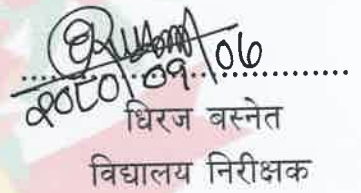 २०८०/०९/०६
धिरज बस्नेत
विद्यालय निरीक्षक